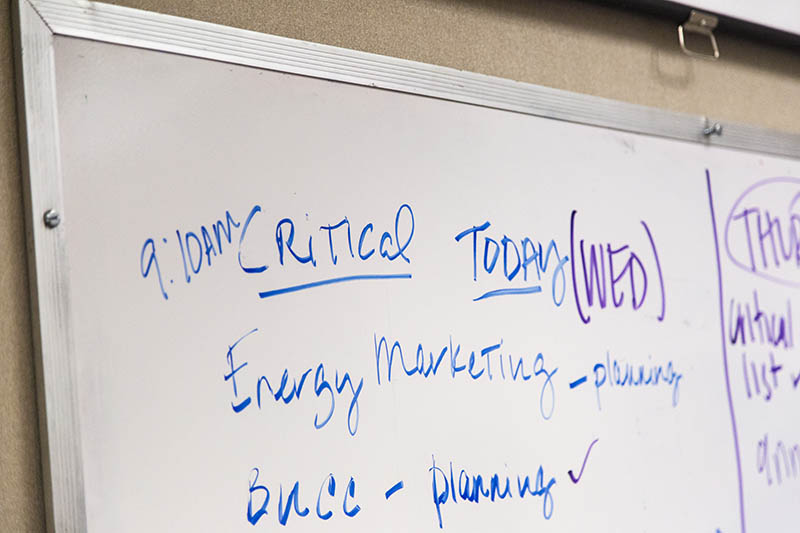 9:10AM CRiTical TODAy (WED)
Energy Marketing - planning
BNCC - planning ✓
THU
critical
list ✓